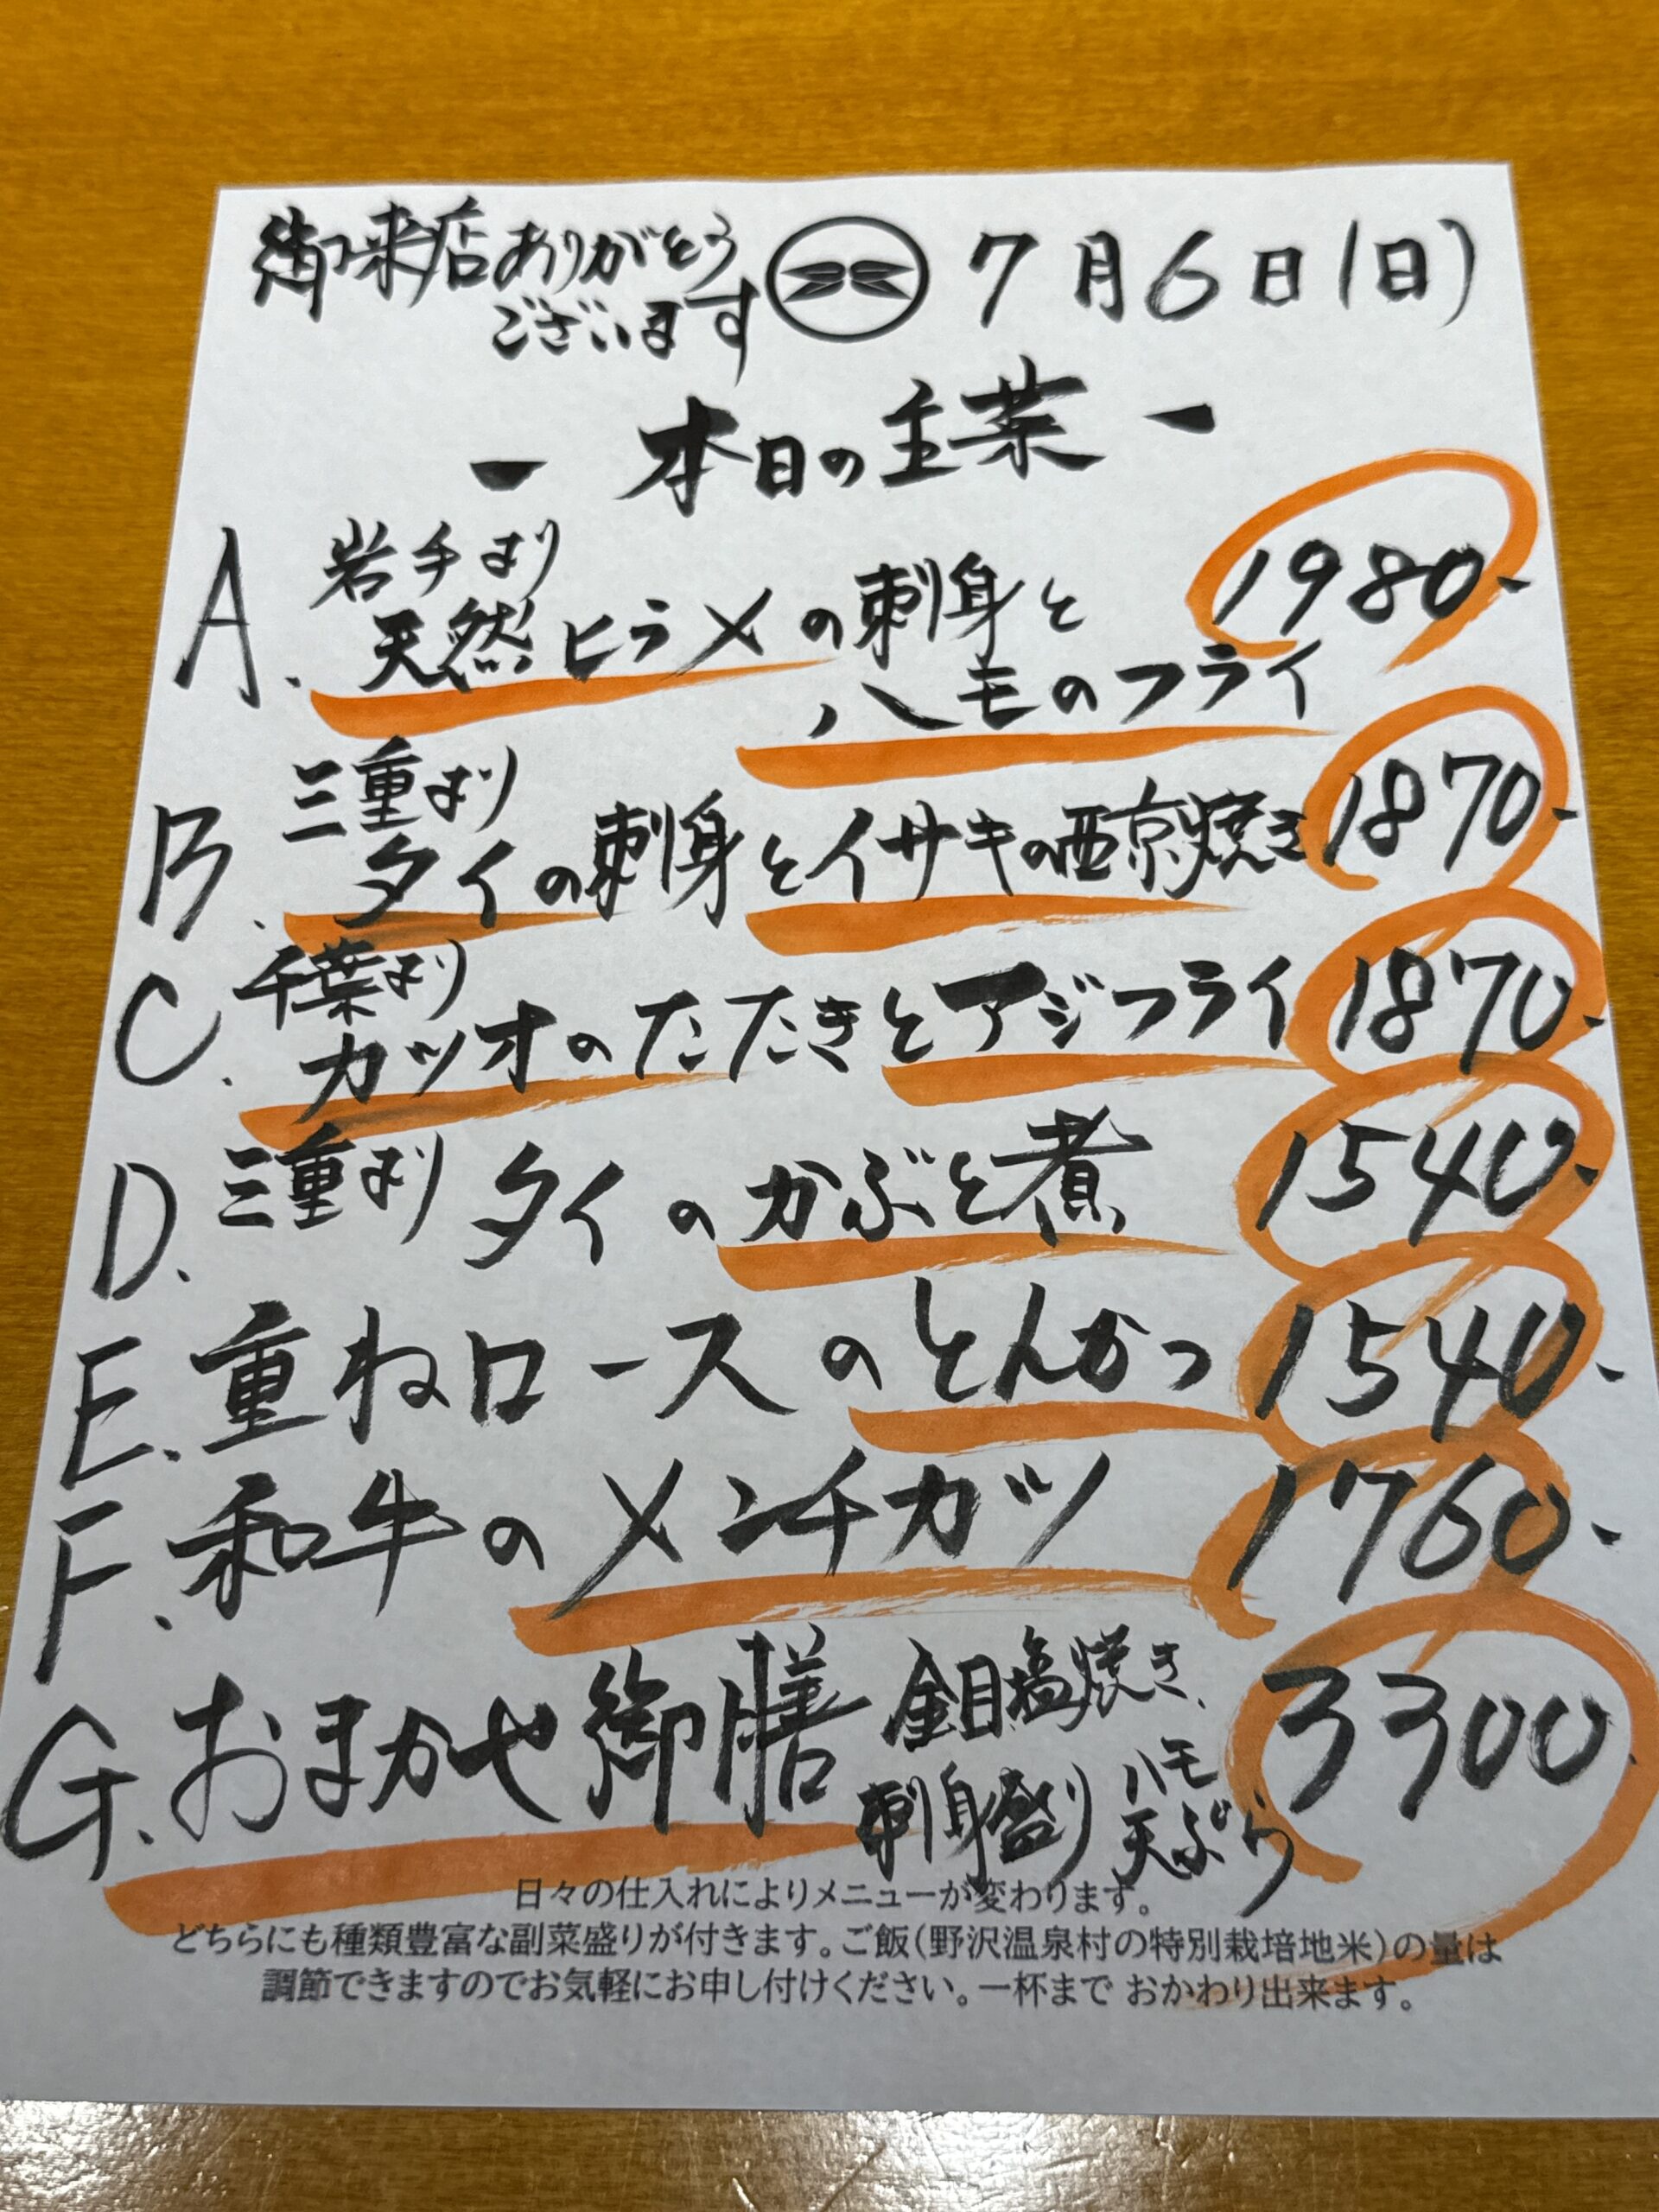 御来店ありがとう
ございます
7月6日(日)
- 本日の主菜 -
A. 岩手より
天然ヒラメの刺身と 1980-
ハモのフライ
B. 三重より
タイの刺身とイサキの西京焼き 1870-
C. 千葉より
カツオのたたきとアジフライ 1870-
D. 三重より タイのかぶと煮 1540-
E. 重ねロースのとんかつ 1540-
F. 和牛のメンチカツ 1760-
G. おまかせ御膳 金目塩焼き、 3300-
刺身盛り ハモ
天ぷら
日々の仕入れによりメニューが変わります。
どちらにも種類豊富な副菜盛りが付きます。ご飯(野沢温泉村の特別栽培地米)の量は
調節できますのでお気軽にお申し付けください。一杯まで おかわり出来ます。